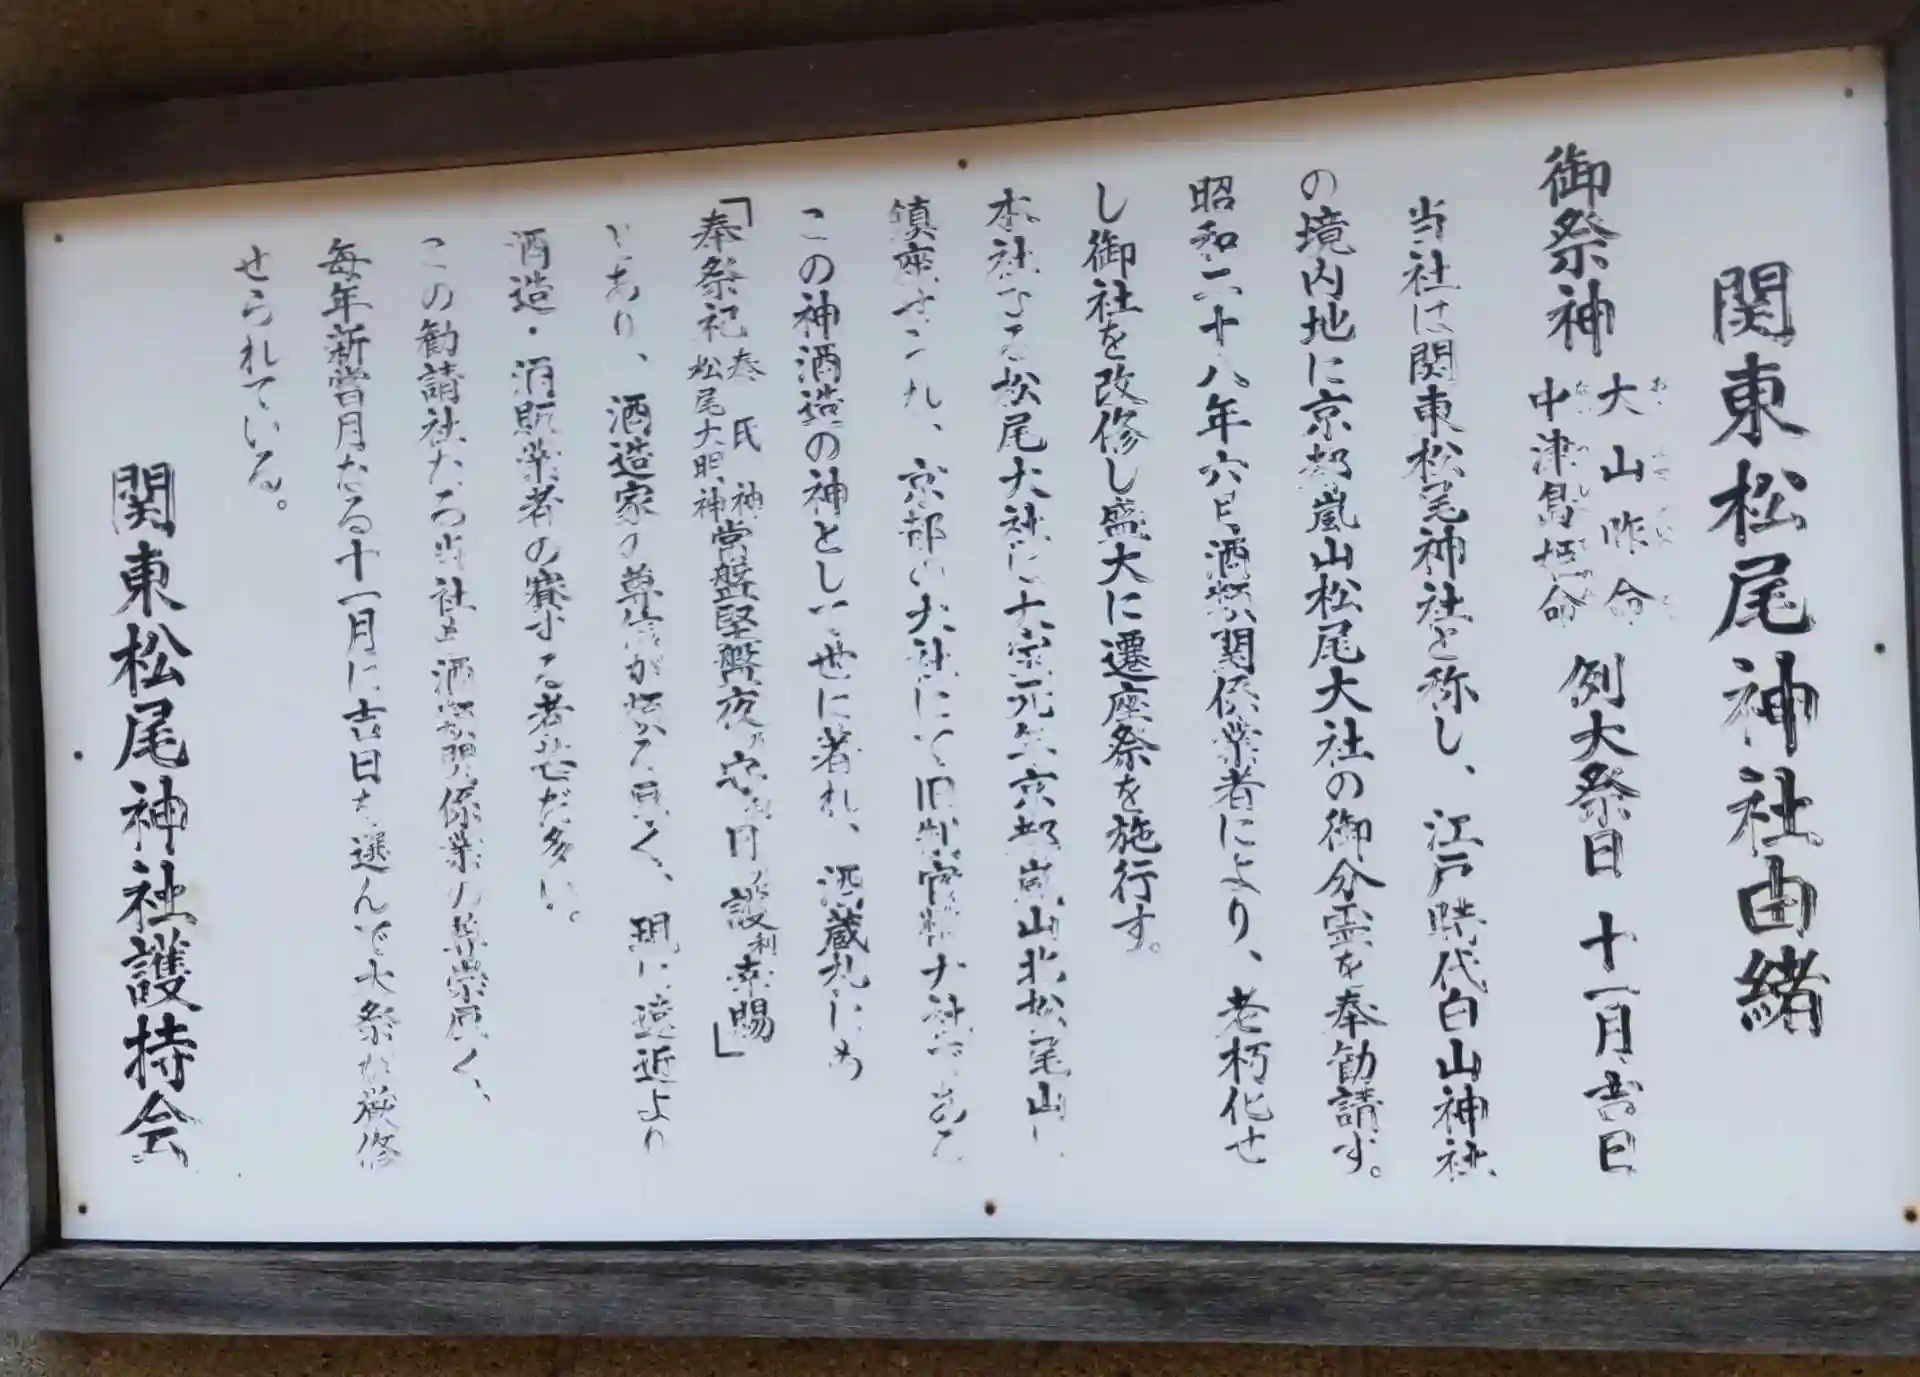 関東松尾神社由緒
御祭神 大山咋命 中津島姫命 例大祭日 十一月吉日
当社は関東松尾神社と称し、江戸時代白山神社
の境内地に京都嵐山松尾大社の御分霊を奉勧請す。
昭和二十八年六日酒類関係業者により、老朽化せ
し御社を改修し盛大に遷座祭を施行す。
本社なる松尾大社は大宝元年京都嵐山北松尾山に
鎮座せられ、京都の大社にて旧制官幣大社である
この神酒造の神として世に著れ、酒蔵札にも
「奉祭祀 秦氏神 松尾大明神 常盤堅盤夜 守 日 護利幸賜」
とあり、酒造家の尊信が頗る厚く、現に遠近より
酒造・消販業者の賽する者甚だ多い。
この勧請社たる当社も酒類関係業の尊崇厚く、
毎年新嘗月なる十一月に吉日を選んで大祭が厳修
せられている。
関東松尾神社護持会